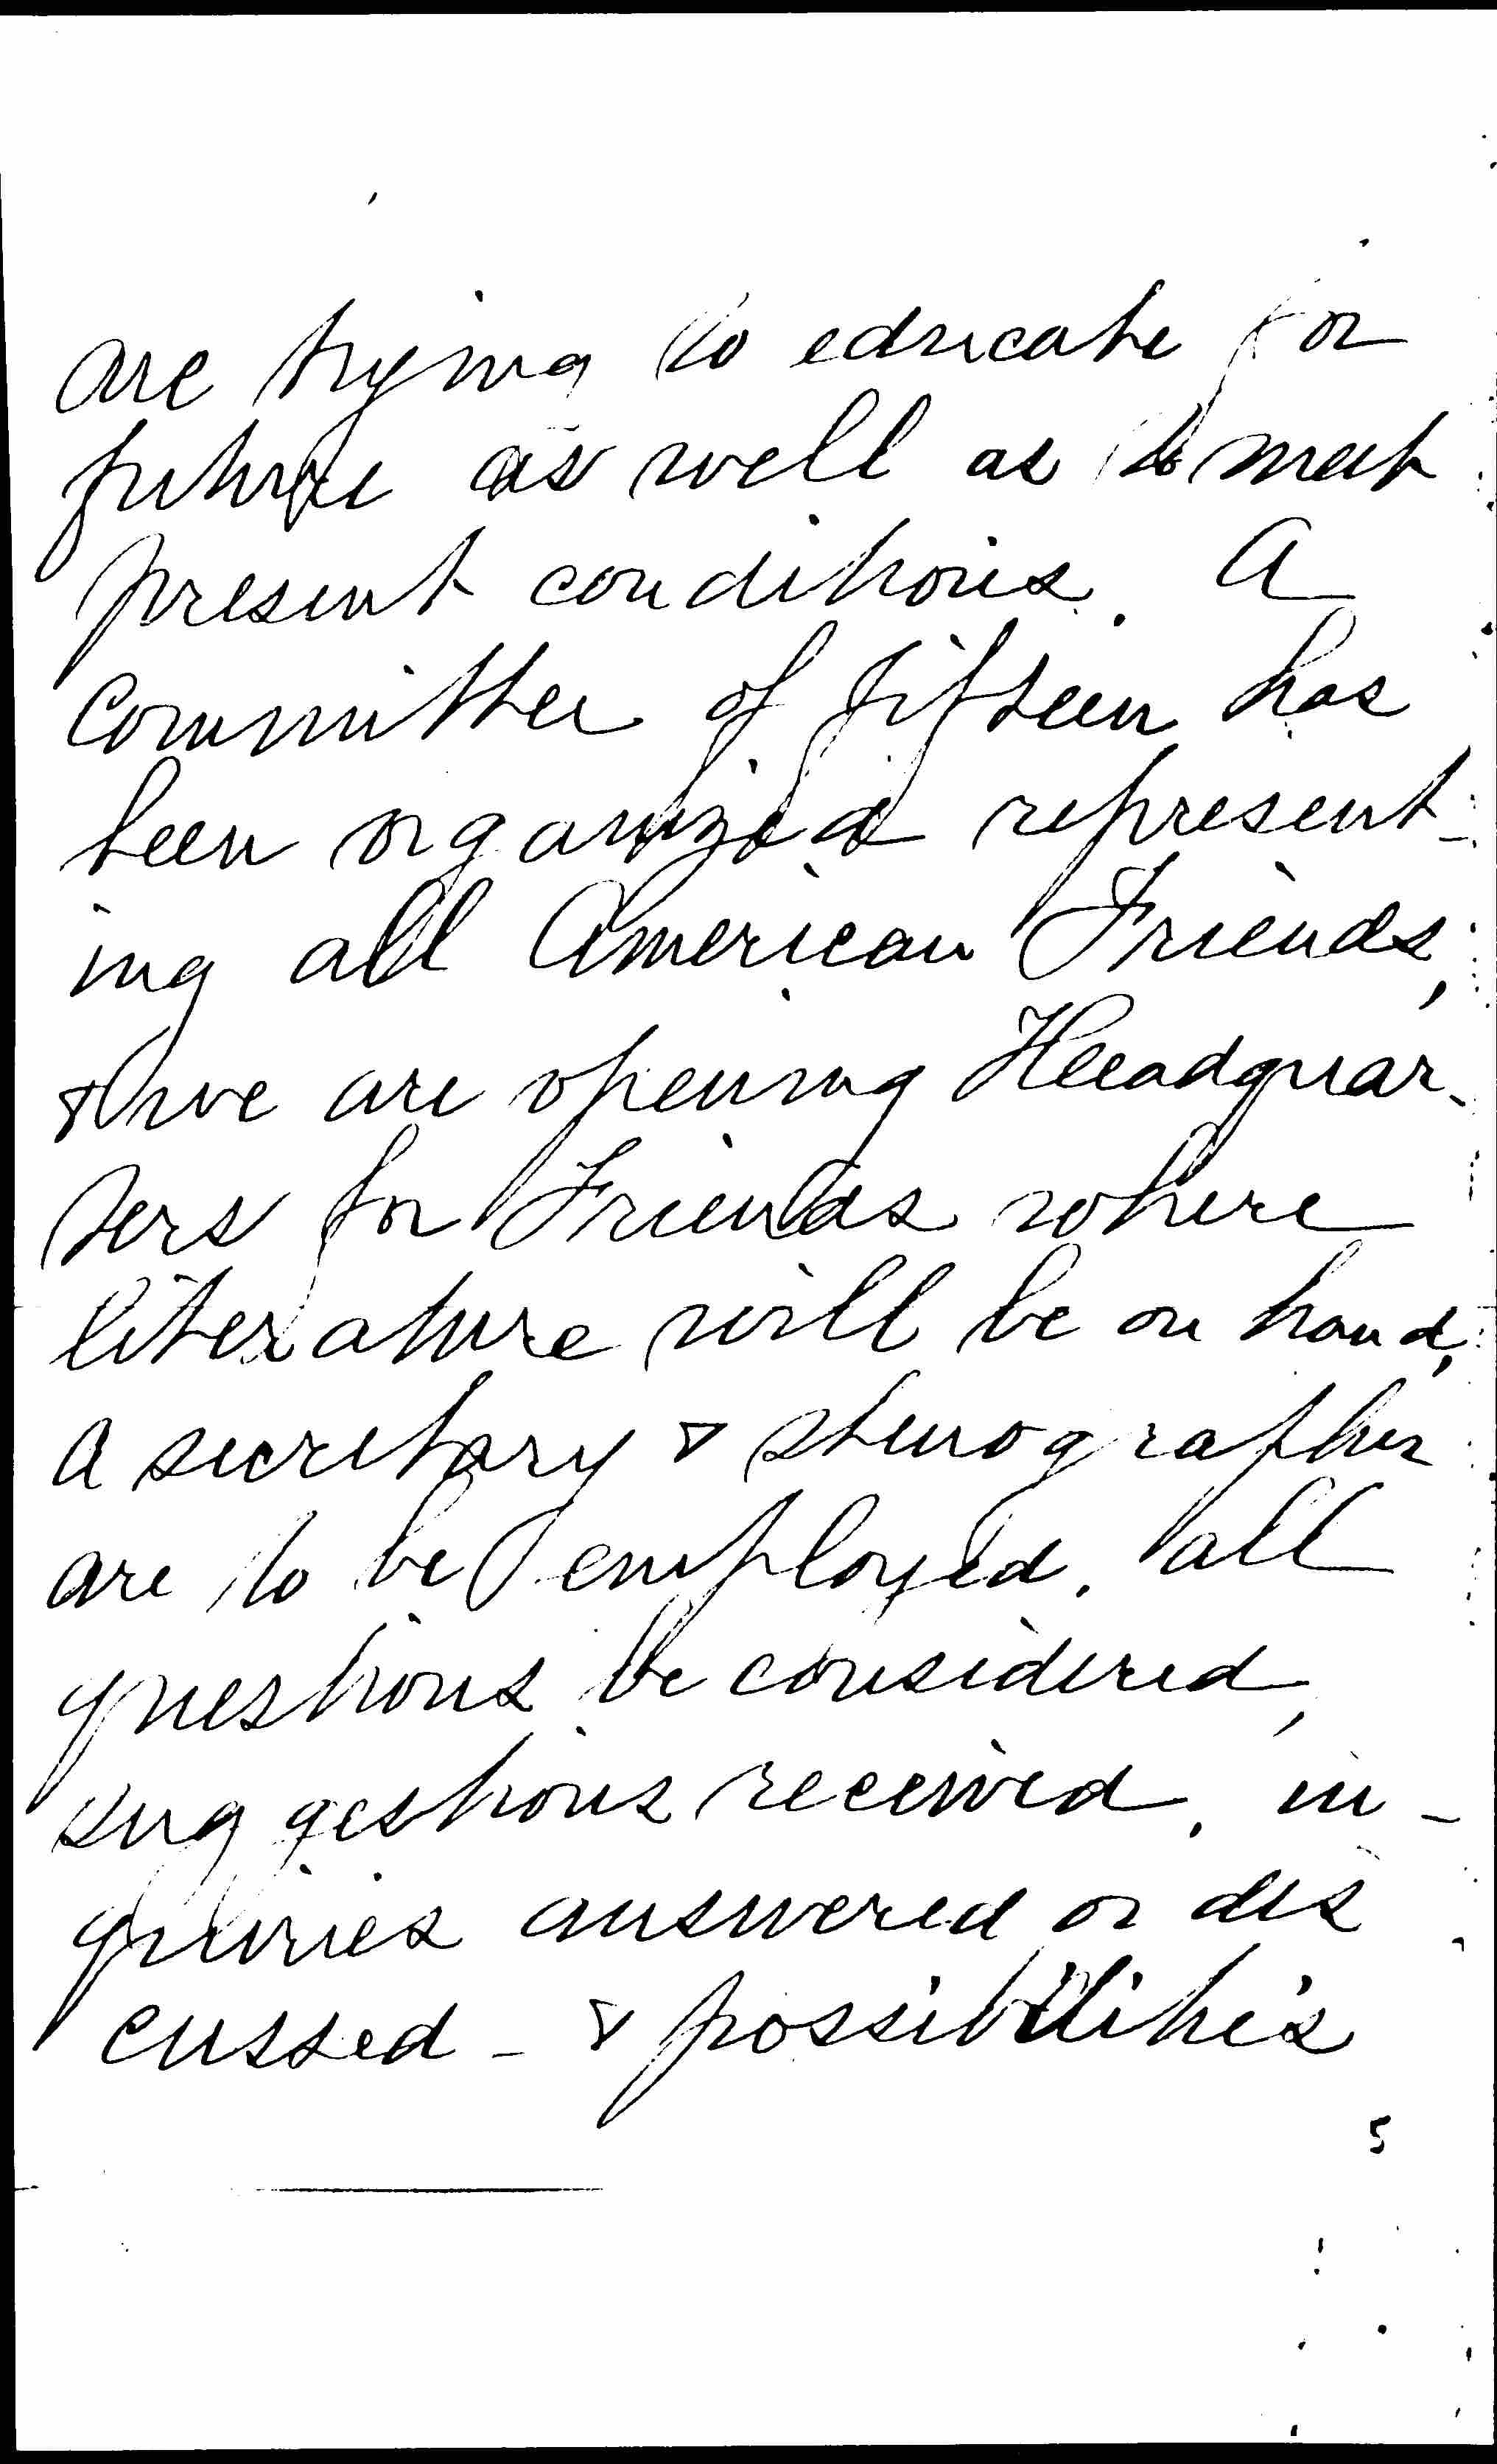 are trying to educate for
future as well as to meet
present conditions. A
Committee of fifteen has
been organized represent-
ing all American Friends,
& we are opening Headquar-
ters for Friends where
literature will be on hand,
a secretary & stenographer
are to be employed, all
questions be considered,
suggestions received, in-
quiries answered or dis
cussed - & possibilities
5